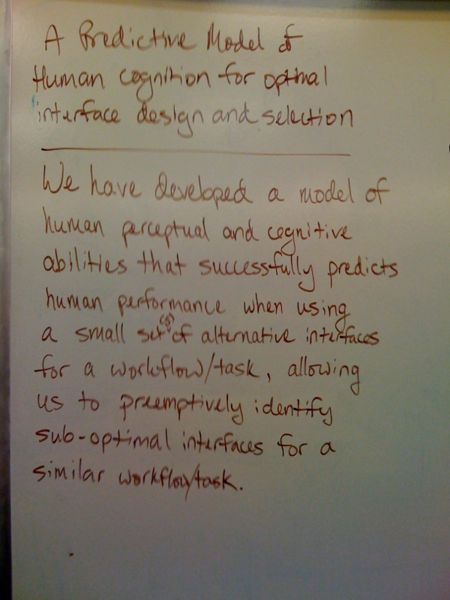 A Predictive Model of
Human cognition for optimal
interface design and selection
We have developed a model of
human perceptual and cognitive
abilities that successfully predicts
human performance when using
a small set(s) of alternative interfaces
for a workflow/task, allowing
us to preemptively identify
sub-optimal interfaces for a
similar workflow/task.